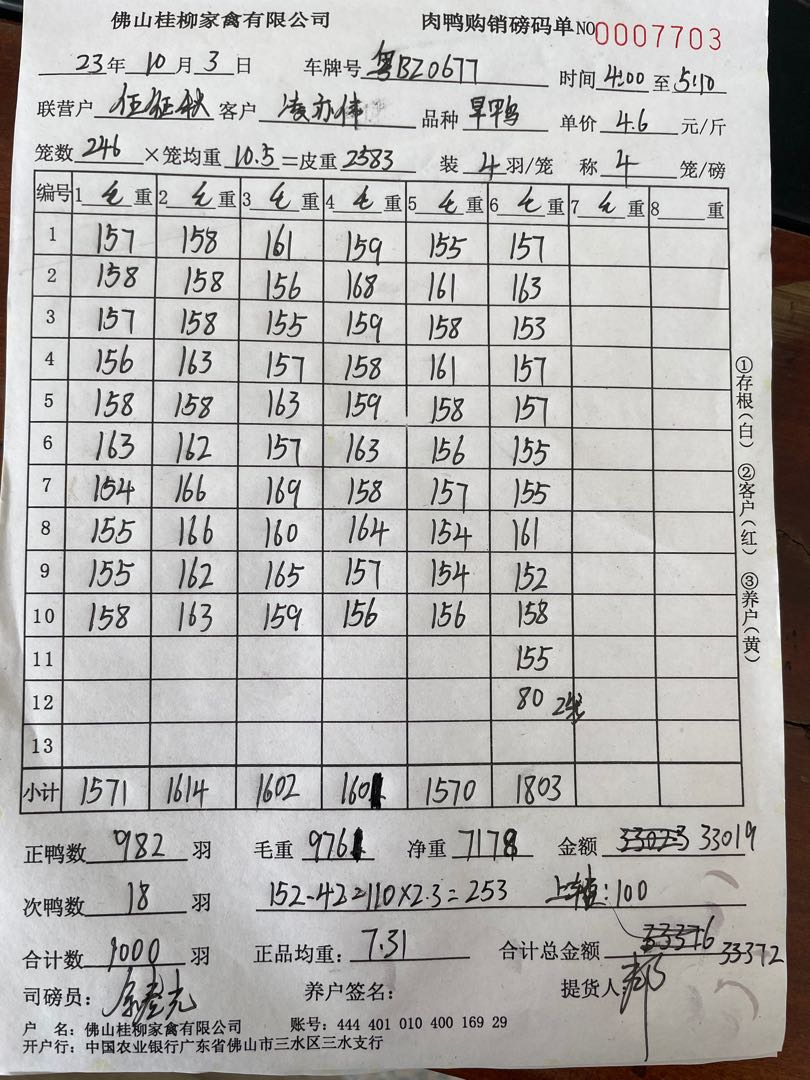 佛山桂柳家禽有限公司 肉鸭购销磅码单 NO 0007703
23年10月3日 车牌号 粤BZ0677 时间 4:00 至 5:10
联营户 客户 凌亦伟 品种 旱鸭 单价 4.6 元/斤
笼数 246 ×笼均重 10.5 =皮重 2583 装 4 羽/笼 称 4 笼/磅
编号 1 毛 重 2 毛 重 3 毛 重 4 毛 重 5 毛 重 6 毛 重 7 毛 重 8 重
1 157 158 161 159 155 157
2 158 158 156 168 161 163
3 157 158 155 159 158 153
4 156 163 157 158 161 157
5 158 158 163 159 158 157
6 163 162 157 163 156 155
7 154 166 169 158 157 155
8 155 166 160 164 154 161
9 155 162 165 157 154 152
10 158 163 159 156 156 158
11 155
12 80 2笼
13
小计 1571 1614 1602 1601 1570 1803
正鸭数 982 羽 毛重 9761 净重 7178 金额 33023 33019
次鸭数 18 羽 152-42=110×2.3=253 上车费:100
合计数 1000 羽 正品均重: 7.31 合计总金额 33376 33372
司磅员: 养户签名: 提货人:
户 名: 佛山桂柳家禽有限公司 账号: 444 401 010 400 169 29
开户行: 中国农业银行广东省佛山市三水区三水支行
①存根(白) ②客户(红) ③养户(黄)